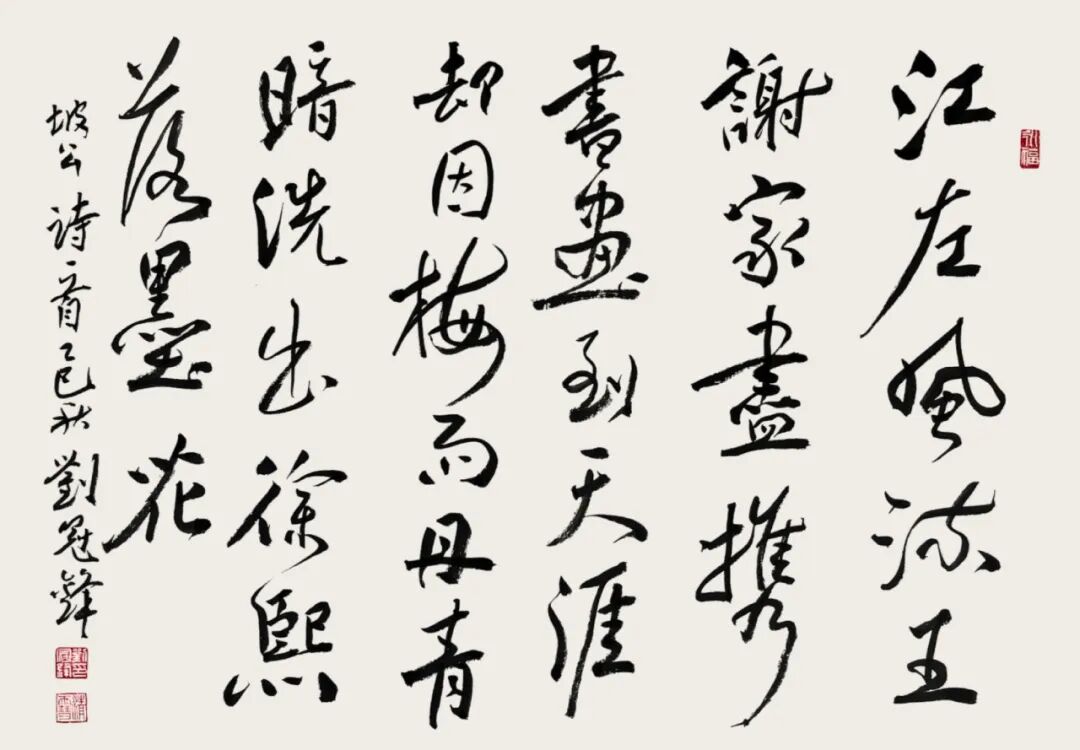 江左風流王
謝家盡攜
書畫到天涯
却因梅雨丹青
暗洗出徐熙
落墨花
坡公诗一首己亥秋劉冠鋒